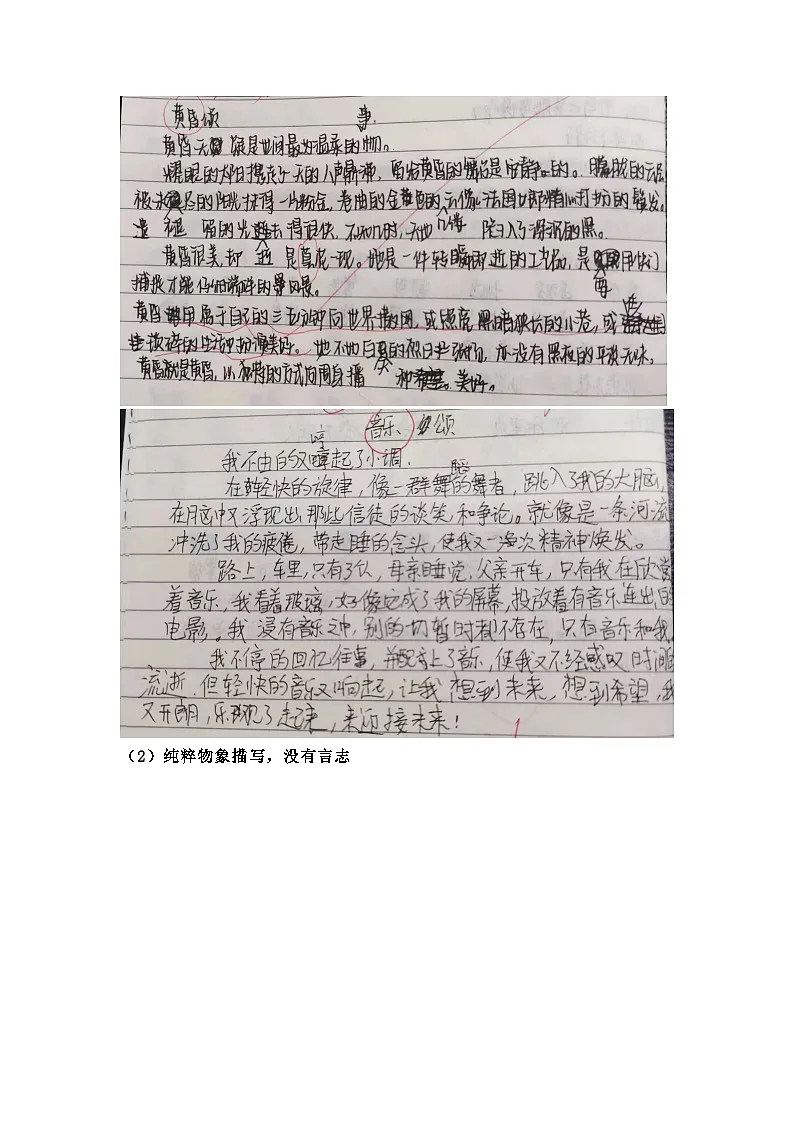 黄昏颂
事
黄昏无疑是世间最为温柔的物。
耀眼的太阳携走了一天的人声鼎沸，留给黄昏的舞台是安静的。朦胧的云层
被未尽的阳光抹得一片粉金，卷曲的金色的云像法国女郎精心打扮的鬈发。
遗留的光逝去得很快，不知几时，天地已悄陷入了深沉的黑。
黄昏很美，却是昙花一现。她是一件转瞬即逝的工艺品，是每用快门
捕捉才能仔细端详的景。
黄昏用属于自己的三言两语向世界撒网，或照亮黑暗狭长的小巷，或
生活扮演美好。她不如白天的烈日张扬，亦没有黑夜的平淡无味。
黄昏就是黄昏，以独特的方式向周身播种美好。
音乐颂
我不由自主又哼起了小调。
在轻快的旋律，像一群舞蹈的舞者，跳入了我的大脑，
在脑中又浮现出那些信徒的谈笑和争论。就像是一条河流
冲洗了我的疲倦，带走睡的念头，使我又一次精神焕发。
路上，车里，只有了仨，母亲睡觉，父亲开车，只有我在欣赏
着音乐，我看着玻璃，好像它成了我的屏幕，投放着有音乐连出的
电影。我浸有音乐之中，别的一切暂时都不存在，只有音乐和我。
我不停的回忆往事，并配上了音乐，使我又不经感叹时间的
流逝，但轻快的音乐又响起，让我想到未来，想到希望，我
又开朗，乐观了起来，来迎接未来！
（2）纯粹物象描写，没有言志